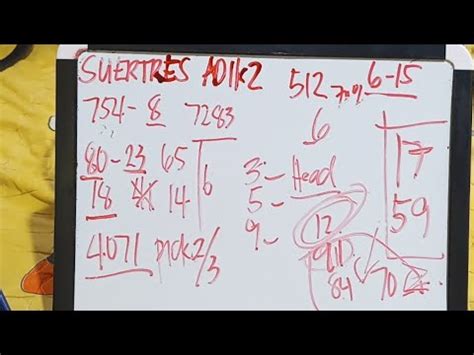 SUERTRES ADIK2
512 70% 6-15
754-8 7283
6
80-23 65
78 14 6
4071 pick2/3
3- Head
5-
9-
12
84
70
17
59